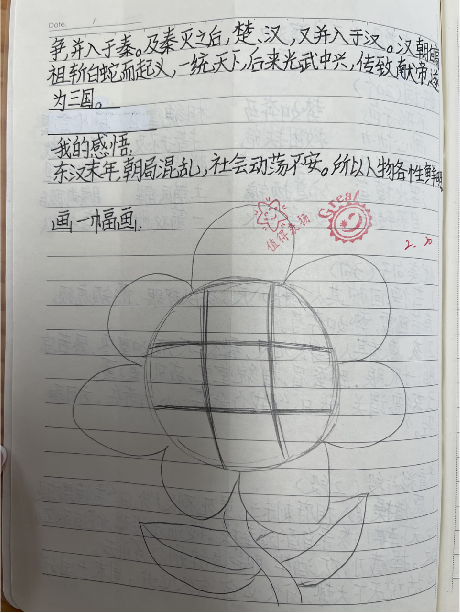 Date
争,并入于秦。及秦灭之后,楚、汉,又并入于汉。汉朝自高
祖斩白蛇而起义,一统天下,后来光武中兴,传致献帝,遂
为三国。
我的感悟:
东汉末年,朝局混乱,社会动荡不安。所以人物各性鲜明
画一幅画.
值得表扬
Great
2. 20